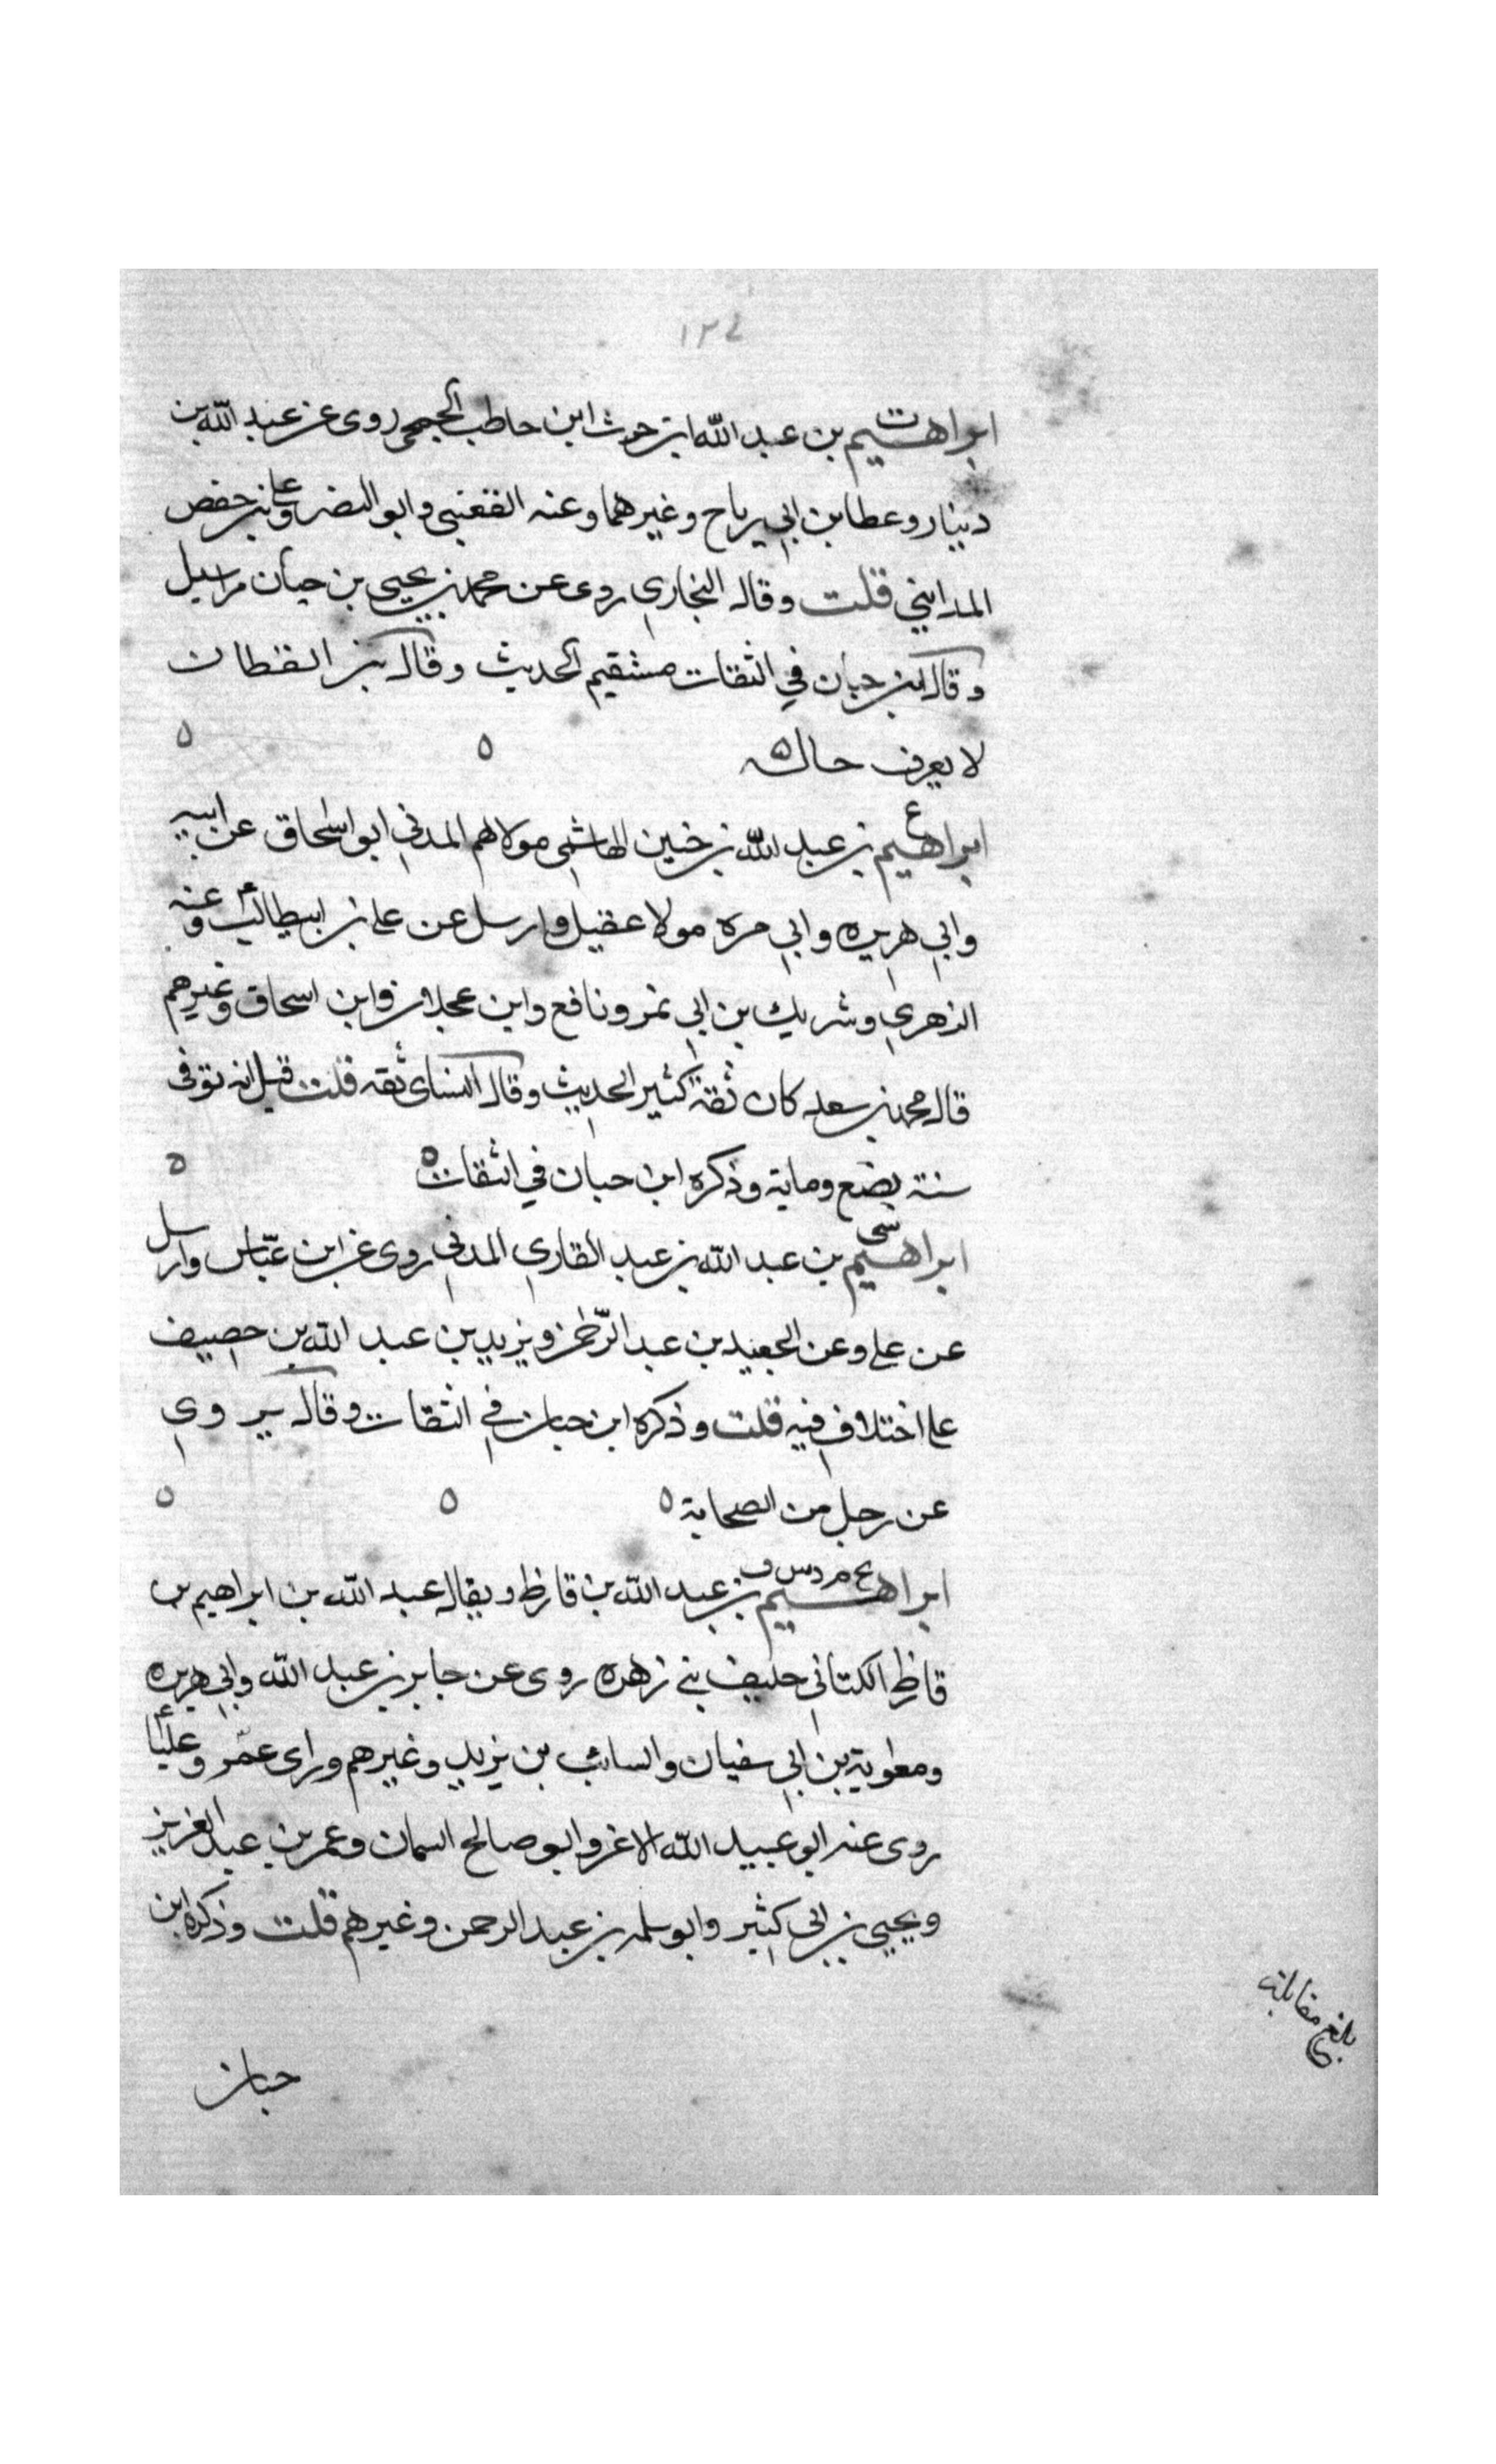 ١٣٤
ابراهيم ت بن عبد الله ابن حرث ابن حاطب الجمحي روى عن عبد الله بن
دينار وعطا بن ابي رباح وغيرهما وعنه القعنبي وابو النضر وعلي بن حفص
المدايني قلت وقال البخاري روى عن محمد بن يحيى بن حبان مراسيل
وقال ابن حبان في الثقات مستقيم الحديث وقال بن القطان
لا يعرف حاله ه ه ه
ابراهيم ع بن عبد الله بن حنين الهاشمي مولاهم المدني ابو اسحاق عن ابيه
وابي هريره وابي مره مولا عقيل وارسل عن علي بن ابيطالب وعنه
الزهري وشريك بن ابي نمر ونافع وابن عجلان وابن اسحاق وغيرهم
قال محمد بن سعد كان ثقة كثير الحديث وقال النساى ثقه قلت قيل انه توفى
سنة بضع وماية وذكره ابن حبان في الثقات ه ه
ابراهيم سي بن عبد الله بن عبد القاري المدني روى عن ابن عباس وارسل
عن علي وعن الجعيد بن عبد الرحمن ويزيد بن عبد الله بن حصيف
علي اختلاف فيه قلت وذكره ابن حبان في الثقات وقال يروي
عن رجل من الصحابة ه ه ه
ابراهيم بخ م د س ق بن عبد الله بن قارظ ويقال عبد الله بن ابراهيم بن
قاظ الكتاني حليف بني زهره روى عن جابر بن عبد الله وابي هريره
ومعاوية بن ابي سفيان والسائب بن يزيد وغيرهم وراى عمر وعليا
روى عنه ابو عبيد الله الاغر وابو صالح السمان وعمر بن عبد العزيز
ويحيى بن ابي كثير وابو سلمه بن عبد الرحمن وغيرهم قلت وذكره ابن
بلغ مقابلة
حبان